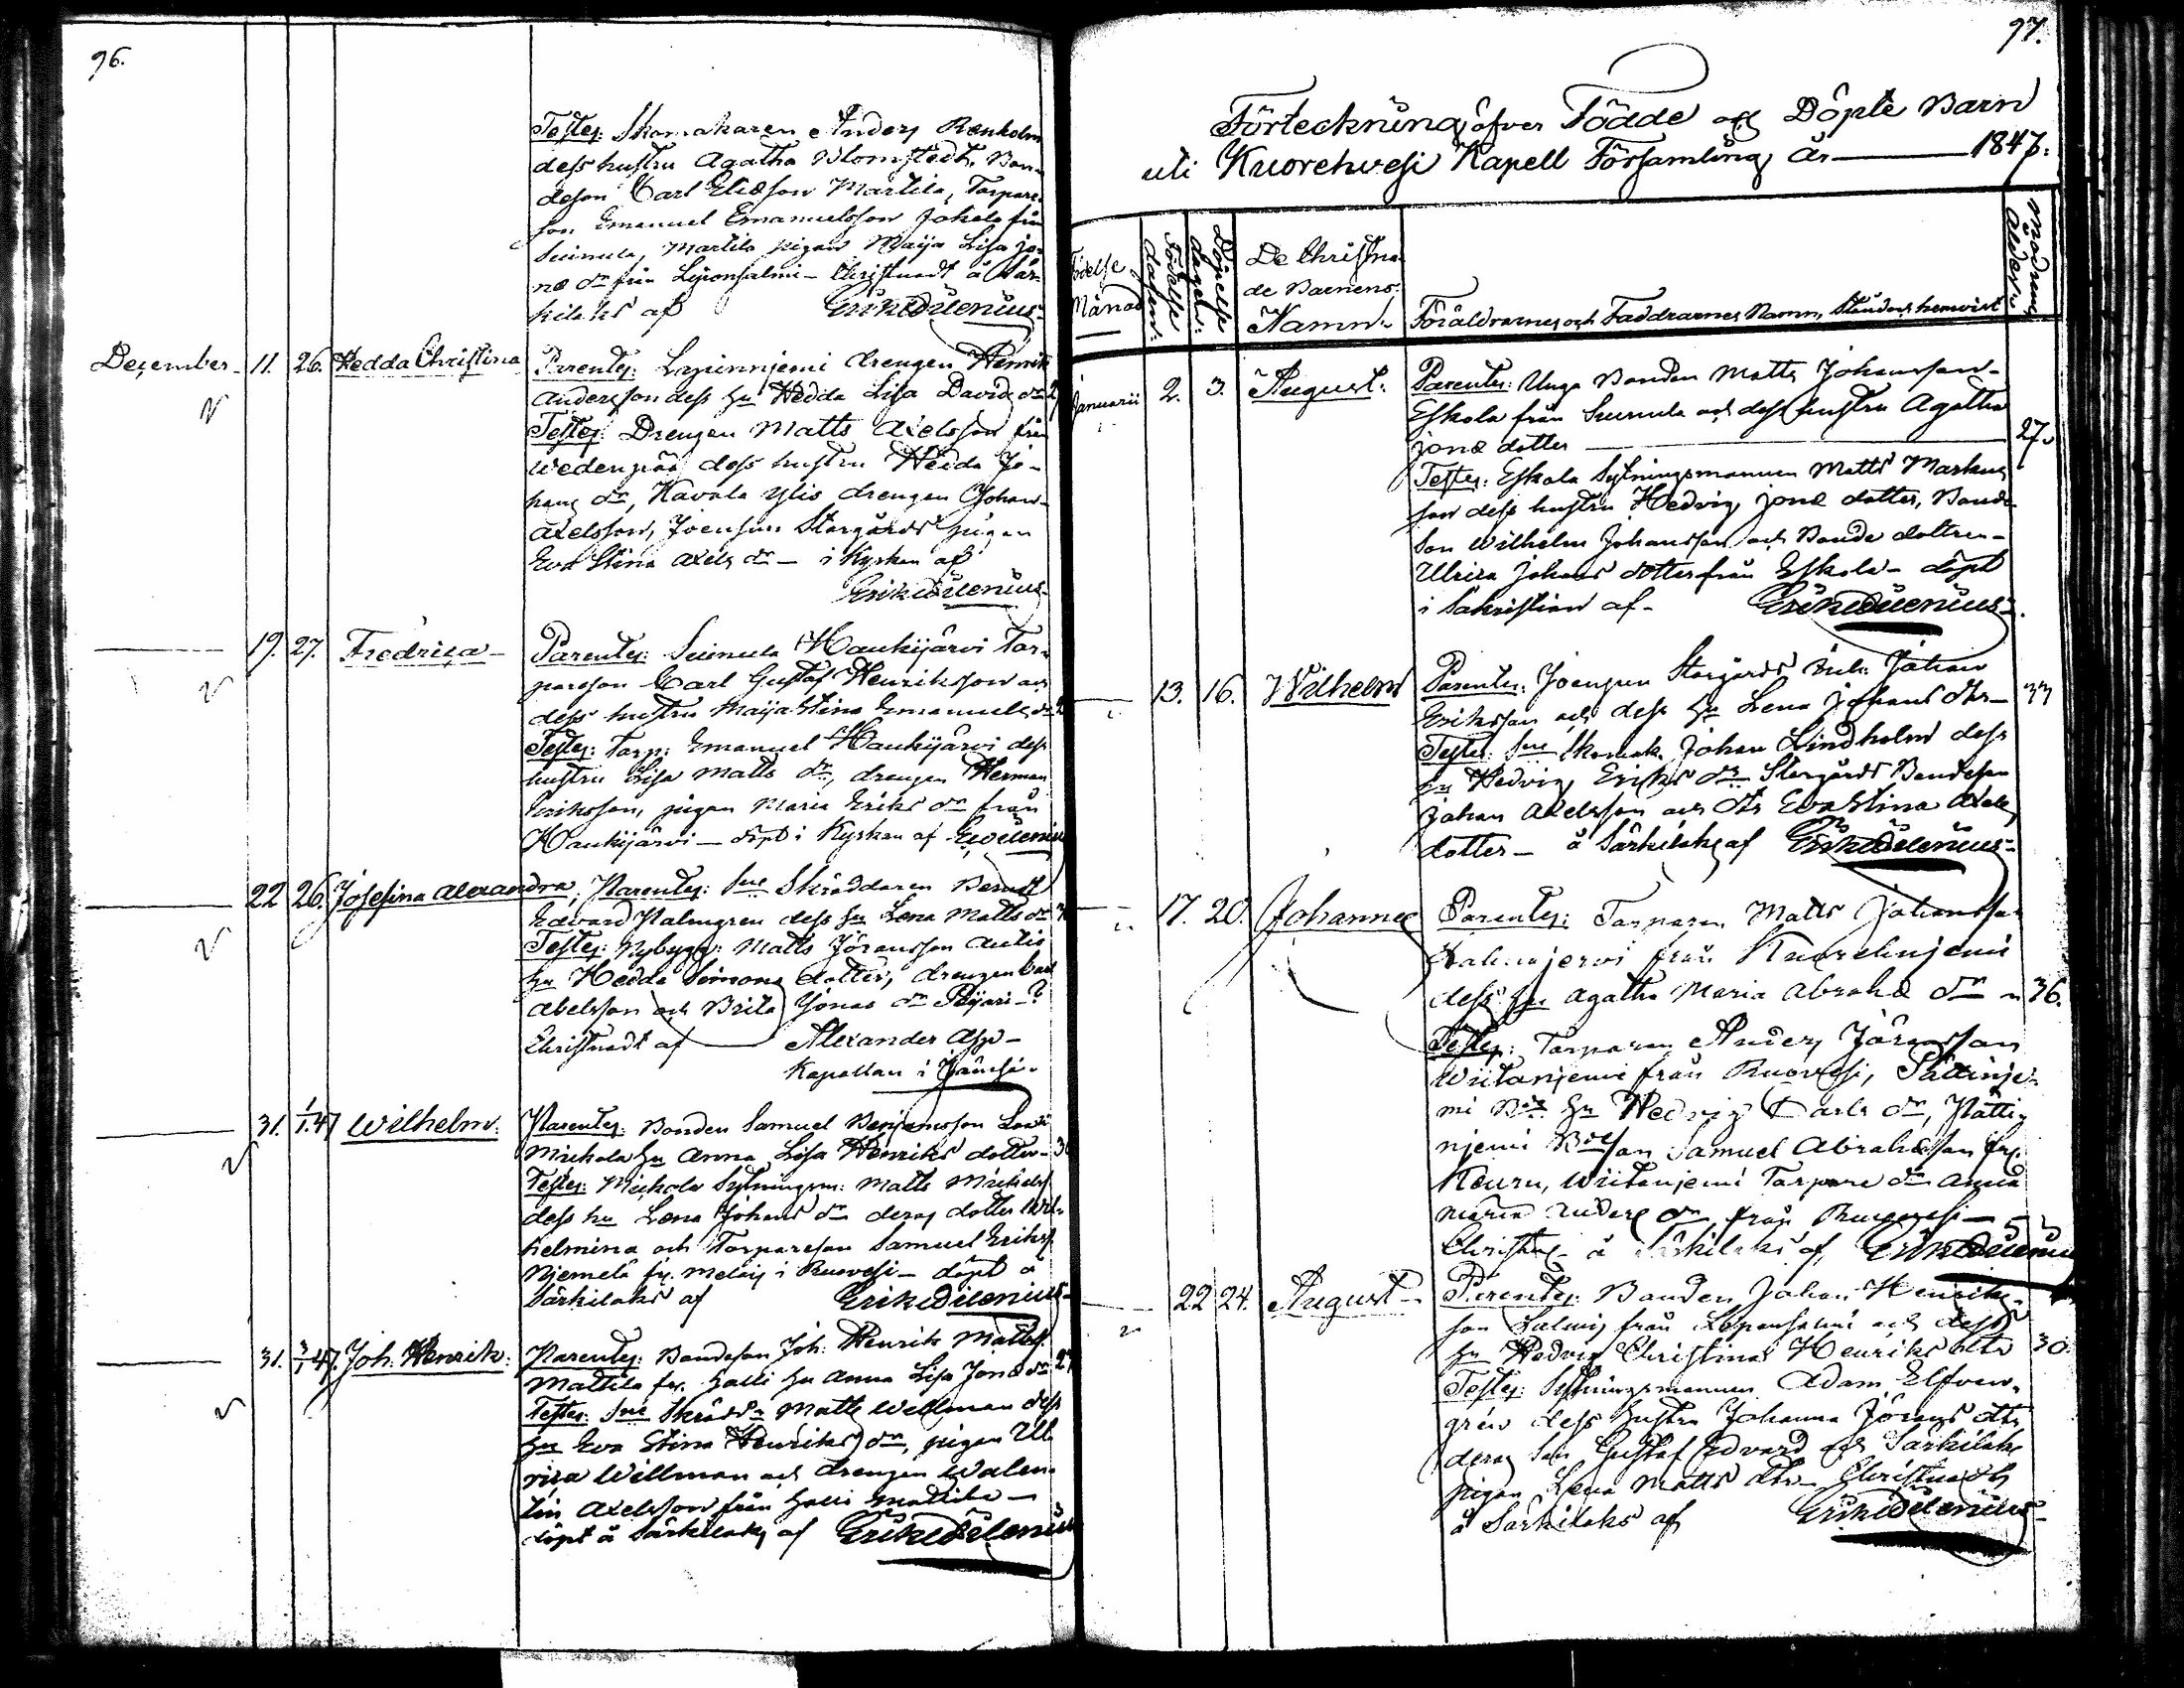 96.
Testes: Skomakaren Anders Renholm
dess hustru Agatha Blomstedt, Bon-
deson Carl Eliæson Martila, Torpare-
son Emanuel Emanuelsson Jokela från
Suinula, Martila pigan Maija Lisa Jo-
næ dr från Leponsalmi - Christnadt å Sär-
kilaks af Erik Dilenius
December - 11. 26. Hedda Christina Parentes: Lapinnjemi drengen Henrik
Andersson dess hu Hedda Lisa Davids dr
Testes: Drengen Matts Axelsson från
Wedenpää, dess hustru Hedda Jo-
hans dr, Kavala Ylis drengen Johan
Axelsson, Joensuu Storgårds pigan
Eva Stina Axels dr - i Kyrkan af
Erik Dilenius
19. 27. Fredrica - Parentes: Suinula Haukijärvi Tor-
paresson Carl Gustaf Henriksson och
dess hustru Maija Stina Emanuels dr
Testes: Torp: Emanuel Haukijärvi dess
hustru Lisa Matts dr, drengen Herman
Eriksson, pigan Maria Eriks dr från
Haukijärvi - döpt i Kyrkan af E Dilenius
22 26. Josefina Alexandra, Parentes: Sne Skräddaren Berndt
Edvard Palmgren dess hu Lena Matts dr
Testes: Nybygg: Matts Jöransson Autio
hu Hedda Simons dotter, drengen Carl
Abelsson och Brita Jonas dr Pöijari - ?
Christnadt af Alexander Asp -
Kapellan i Jämsä.
31. 1/1.47 Wilhelm. Parentes: Bonden Samuel Benjamsson
Mickola hu Anna Lisa Henriks dotter -
Testes: Mickola Sytningsm: Matts Mickels
dess hu Lena Johans dr deras dotter Wil-
helmina och Torpareson Samuel Eriks
Njemelä fr. i Ruovesi - döpt å
Särkilaks af Erik Dilenius
31. 3/1 47. Joh. Henrik: Parentes: Bondeson Joh: Henrik Mattss.
Mattila fr. Halli hu Anna Lisa Jonæ dr 27
Testes: Sne Skrädd Matts Wellman dess
hu Eva Stina Henriks dr, pigan Ul-
rica Wellman och drengen Walen-
tin Axelsson från Halli Mattila -
döpt å Särkilaks af Erik Dilenius
97.
Förteckning öfver Födde och Döpte Barn
uti Kuorehvesi Kapell Församling år 1847.
Födelse Månad
Födelse dagen.
Döpelse dagen.
De Christna-
de Barnens
Namn.
Föräldrarnes och Faddrarnes Namn, Stånd och hemvist
Modrens ålder.
Januarii 2. 3. August. Parentes: Unga Bonden Matts Johansson
Eskola från Suinula och dess hustru Agatha
Jonæ dotter 27.
Testes: Eskola Sytningsmannen Matts Markus
son dess hustru Hedvig Jonæ dotter, Bonde
son Wilhelm Johansson och Bonde dottren
Ulrica Johans dotter från Eskola - döpt
i Sakristian af - Erik Dilenius
13. 16. Wilhelm Parentes: Joensuu Storgårds Inh: Johan
Eriksson och dess hu Lena Johans dtr - 33
Testes: Sne Skomak. Johan Lindholm dess
hu Hedvig Eriks dr Storgårds Bondeson
Johan Axelsson och dtr Eva Stina Axels
dotter - å Särkilaks af Erik Dilenius
17. 20. Johannes Parentes: Torparen Matts Johansson
från Kuorehnjemi
dess hu Agatha Maria Abrahæ dr 36.
Testes: Torparen Anders Jöransson
Wiitanjemi från Ruovesi, Pättinje-
mi hu Hedvig Carls dr, Pätti-
njemi son Samuel Abrahæsson fr.
Keuru, Wiitanjemi Torpare dr Anna
Maria Anders dr från Ruovesi -
Christn. å Särkilaks af, Erik Dilenius
22 24. August - Parentes: Bonden Johan Henriks-
son Salmi från Leponsalmi och dess
hu Hedvig Christina Henriks dtr 30.
Testes: Sytningsmannen Adam Elfven-
gren dess hustru Johanna Jörans dtr
deras son Gustaf Edvard och Särkilaks
pigan Lena Matts dtr - Christnadt
å Särkilaks af Erik Dilenius